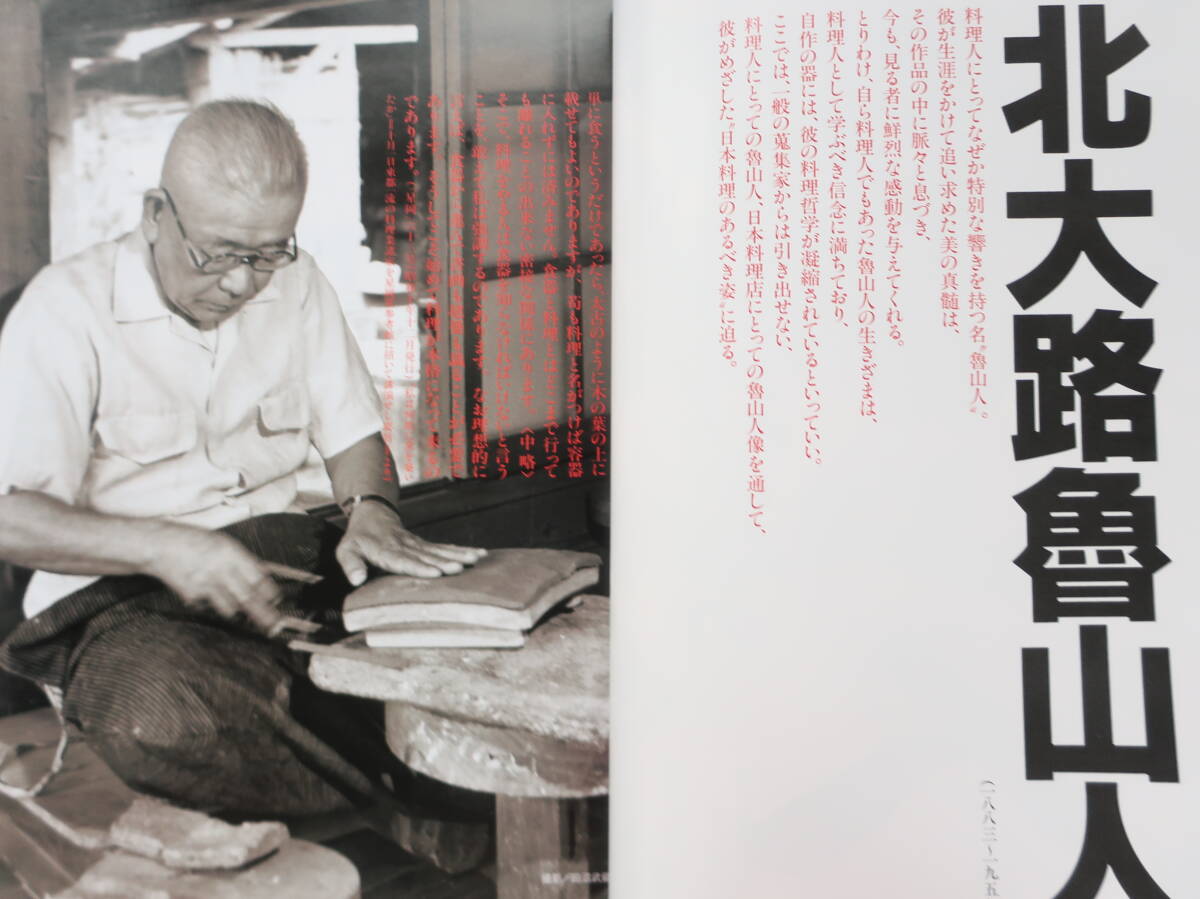 北大路魯山人
(一八八三〜一九五
料理人にとってなぜか特別な響きを持つ名〝魯山人〟。
彼が生涯をかけて追い求めた美の真髄は、
その作品の中に脈々と息づき、
今も、見る者に鮮烈な感動を与えてくれる。
とりわけ、自ら料理人でもあった魯山人の生きざまは、
料理人として学ぶべき信念に満ちており、
自作の器には、彼の料理哲学が凝縮されているといっていい。
ここでは、一般の蒐集家からは引き出せない、
料理人にとっての魯山人、日本料理店にとっての魯山人像を通して、
彼がめざした〝日本料理のあるべき姿〟に迫る。
単に食うというだけであったら、太古のように木の葉の上に
載せてもよいのでありますが、苟も料理と名がつけば容器
に入れずには済みません。食器と料理とはどこまで行って
も離れることの出来ない密接な関係にあります。〈中略〉
そこで、料理をやるには食器を知らなければいけないと言う
ことを、敢えて私は強調するのであります。なお理想的に
であります。
撮影／